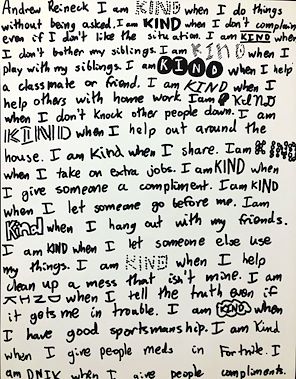 Andrew Reineck I am KIND when I do things
without being asked. I am KIND when I don't complain
even if I don't like the situation. I am KIND when
I don't bother my siblings. I am KIND when I
play with my siblings. I am KIND when I help
a classmate or friend. I am KIND when I
help others with home work. I am KIND
when I don't knock other people down. I am
KIND when I help out around the
house. I am Kind when I share. I am KIND
when I take on extra jobs. I am KIND when
I give someone a compliment. I am KIND
when I let someone go before me. I am
Kind when I hang out with my friends.
I am KIND when I let someone else use
my things. I am KIND when I help
clean up a mess that isn't mine. I am
KIND when I tell the truth even if
it gets me in trouble. I am KIND when
I have good sportsmanship. I am Kind
when I give people meds in Fortnite. I
am DNIK when I give people compliments.